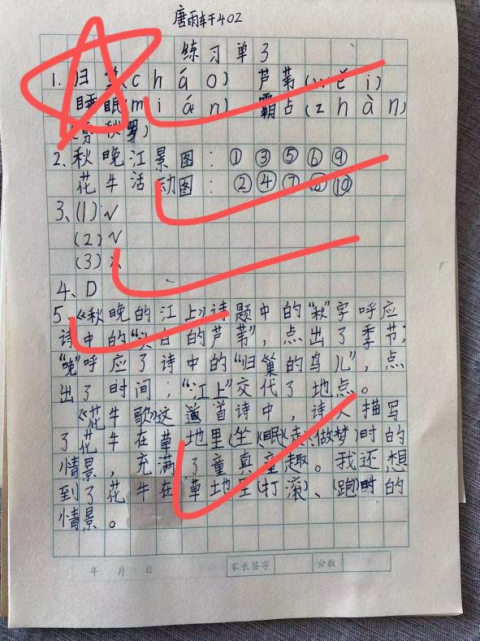 唐雨轩402
练习单3
1.归巢(cháo) 芦苇(wěi)
睡眠(mián) 霸占(zhàn)
(秋)
2.秋晚江景图：①③⑤⑥⑨
花牛活动图：②④⑦⑧⑩
3、(1)√
(2)√
(3)×
4、D
5、《秋晚的江上》诗题中的“秋”字呼应
诗中的“头白的芦苇”，点出了季节；
“晚”呼应了诗中的“归巢的鸟儿”，点
出了时间；“江上”交代了地点。
《花牛歌》这首诗中，诗人描写
了花牛在草地里(坐)(眠)(走)(做梦)时的
情景，充满了童真童趣。我还想
到了花牛在草地里(打滚)、(跑)时的
情景。
年 月 日 家长签字 分数